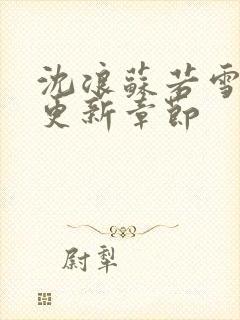 沈浪蘇若雪
更新章節
尉犁